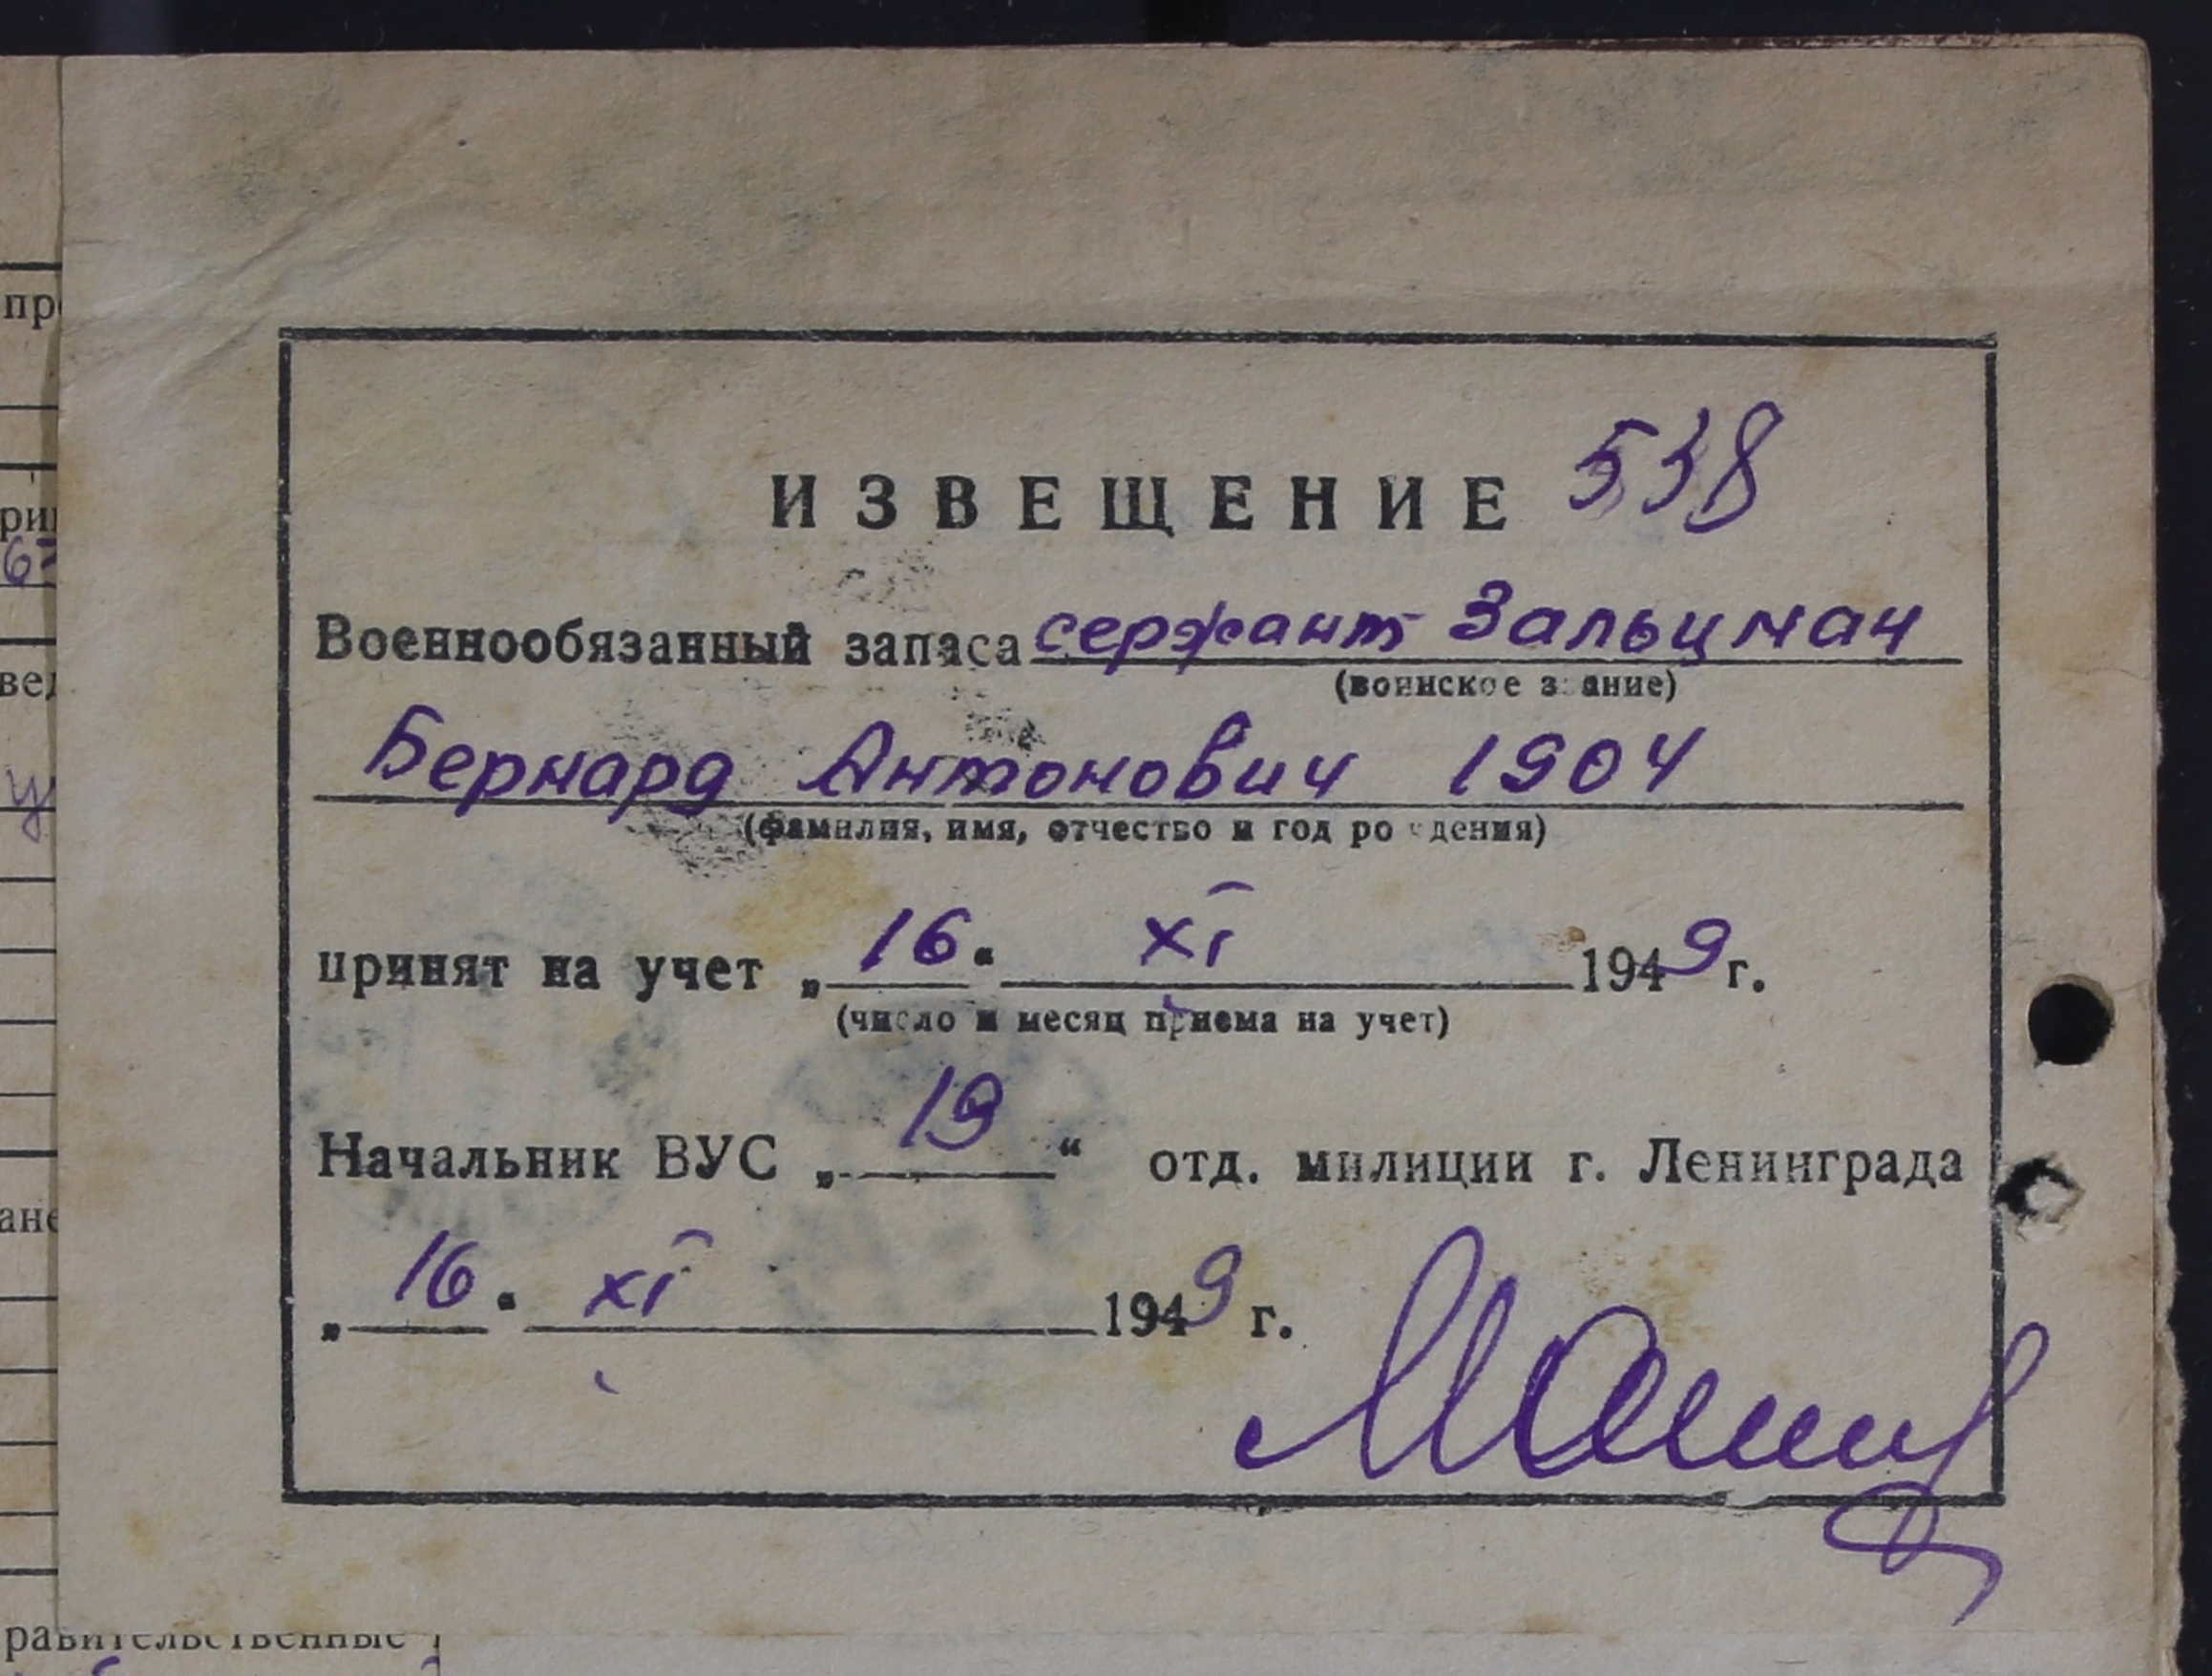 ИЗВЕЩЕНИЕ 538
Военнообязанный запаса сержант Зальцман
(воинское звание)
Бернард Антонович 1904
(фамилия, имя, отчество и год рождения)
принят на учет „16“ XI 1949 г.
(число и месяц приема на учет)
Начальник ВУС „19“ отд. милиции г. Ленинграда
„16“ XI 1949 г.
равительственные